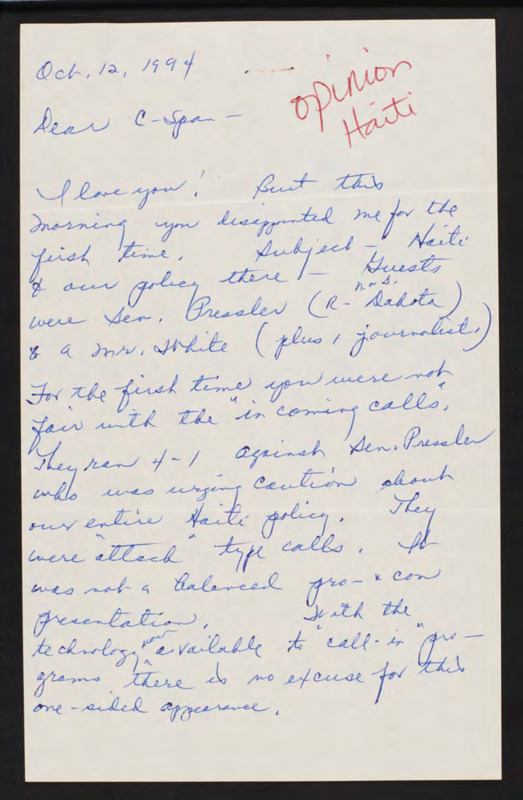 Oct. 12, 1994
opinion
Haiti
Dear C-Span -
I love you! But this
morning you disappointed me for the
first time. Subject - Haiti
& our policy there - Guests
were Sen. Pressler (R- Dakota)
& a Mr. White (plus 1 journalist.)
For the first time you were not
fair with the "in coming calls".
They ran 4-1 against Sen. Pressler
who was urging caution about
our entire Haiti policy. They
were "attack" type calls. It
was not a balanced pro- & con
presentation. With the
technology now available to "call-in" pro-
grams there is no excuse for this
one-sided appearance.